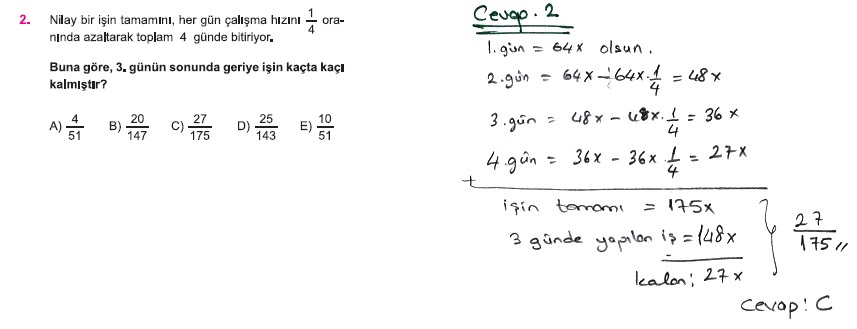 2. Nilay bir işin tamamını, her gün çalışma hızını 1/4 ora-
nında azaltarak toplam 4 günde bitiriyor.
Buna göre, 3. günün sonunda geriye işin kaçta kaçı
kalmıştır?
A) 4/51 B) 20/147 C) 27/175 D) 25/143 E) 10/51
Cevap. 2
1. gün = 64x olsun.
2. gün = 64x - 64x.1/4 = 48x
3. gün = 48x - 48x.1/4 = 36x
4. gün = 36x - 36x.1/4 = 27x
+
işin tamamı = 175x
3 günde yapılan iş = 148x
kalan; 27x
27/175 //
Cevap: C